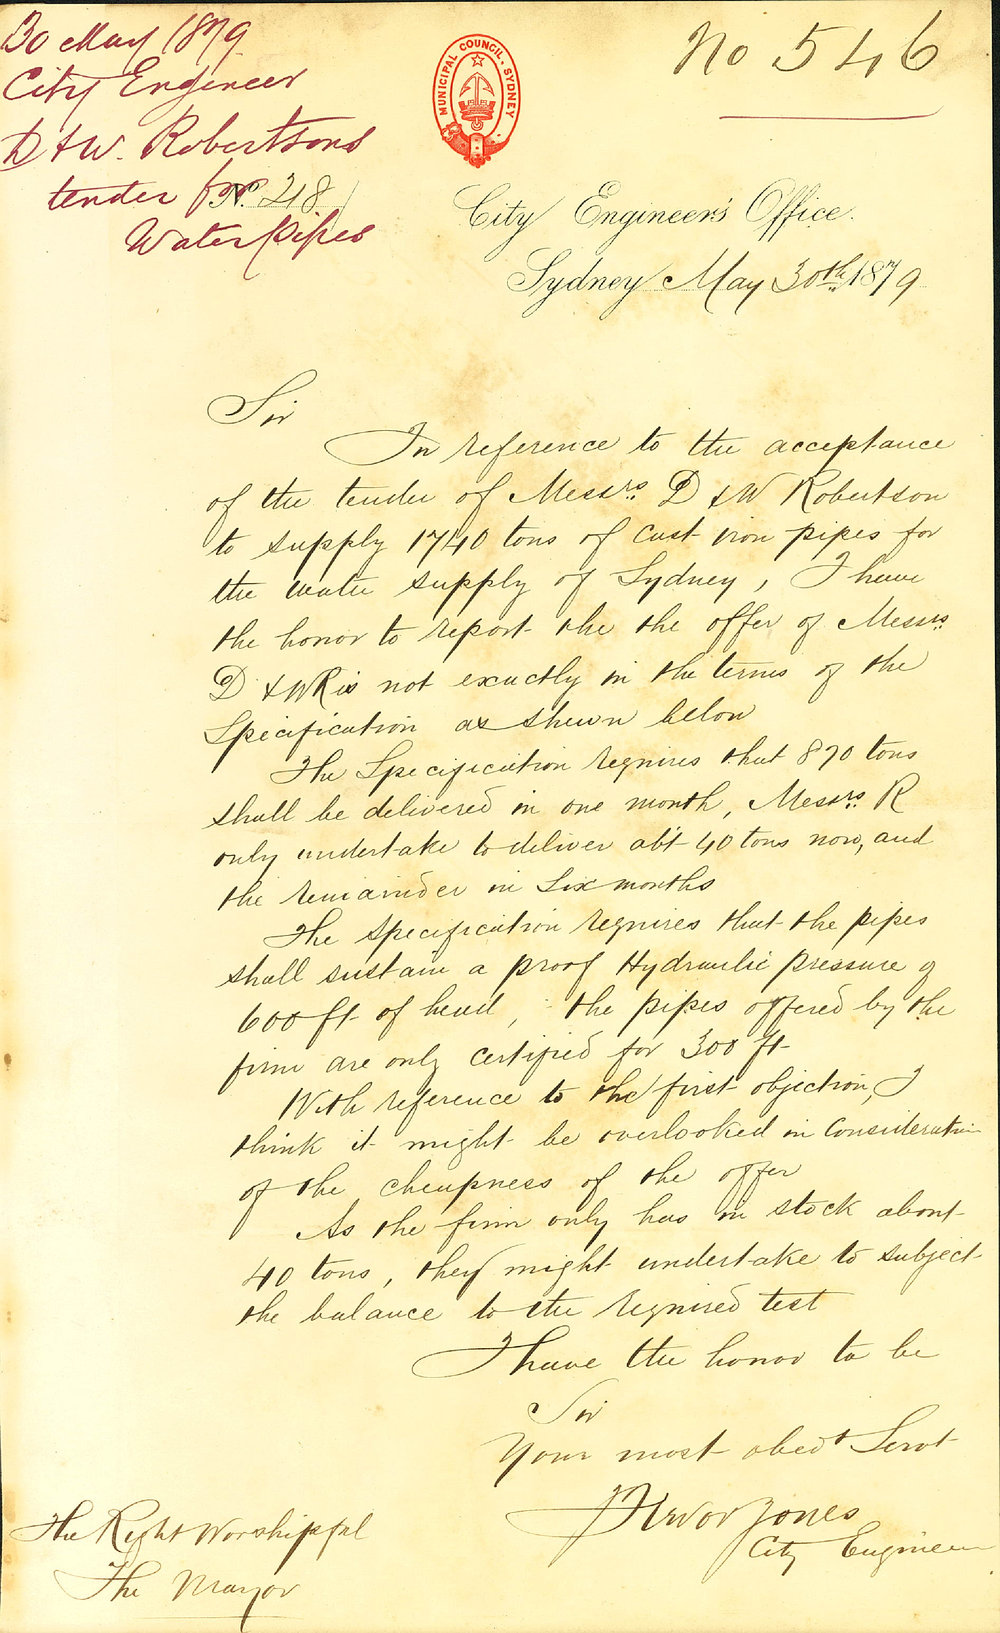 30 May 1879
City Engineer
D & W. Robertsons
tender for
No. 218
Water Pipes
No 546
MUNICIPAL COUNCIL · SYDNEY
City Engineer's Office.
Sydney May 30th 1879
Sir
In reference to the acceptance
of the tender of Messrs D & W Robertson
to supply 1740 tons of cast iron pipes for
the water supply of Sydney, I have
the honor to report the the offer of Messrs
D & W R is not exactly in the terms of the
Specification as shewn below
The Specification requires that 870 tons
shall be delivered in one month, Messrs R
only undertake to deliver abt 40 tons now, and
the remainder in six months
The specification requires that the pipes
shall sustain a proof Hydraulic pressure of
600 ft of head, the pipes offered by the
firm are only certified for 300 ft
With reference to the first objection, I
think it might be overlooked in consideration
of the cheapness of the offer
As the firm only has in stock about
40 tons, they might undertake to subject
the balance to the required test
I have the honor to be
Sir
Your most obedt Servt
Trevor Jones
City Engineer
The Right Worshipful
The Mayor